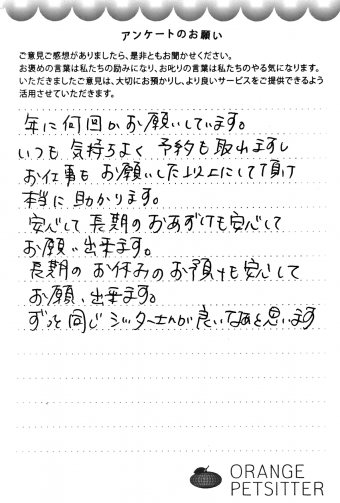 アンケートのお願い
ご意見ご感想がありましたら、是非ともお聞かせください。
お褒めの言葉は私たちの励みになり、お叱りの言葉は私たちのやる気になります。
いただきましたご意見は、大切にお預かりし、より良いサービスをご提供できるよう
活用させていただきます。
年に何回かお願いしています。
いつも気持ちよく予約も取れますし
お仕事もお願いした以上にして頂け
本当に助かります。
安心して長期のおあずけも安心して
お願い出来ます。
長期のお休みのお預けも安心して
お願い出来ます。
ずっと同じシッターさんが良いなあと思います
ORANGE
PETSITTER